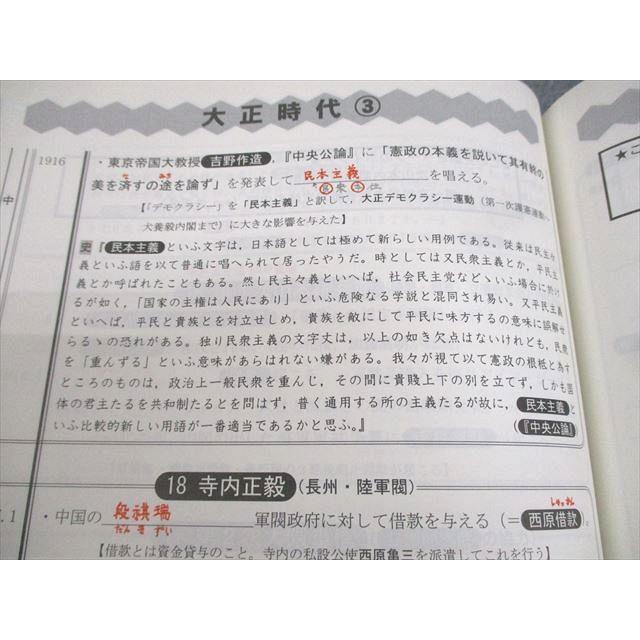 大正時代③
1916
・東京帝国大教授 吉野作造,『中央公論』に「憲政の本義を説いて其有終の
美を済すの途を論ず」を発表して 民本主義 を唱える。
民衆本位
【「デモクラシー」を「民本主義」と訳して,大正デモクラシー運動(第一次護憲運動〜
犬養毅内閣まで)に大きな影響を与えた】
中
史『民本主義といふ文字は,日本語としては極めて新らしい用例である。従来は民主々
義といふ語を以て普通に唱へられて居ったやうだ。時としては又民衆主義とか,平民主
義とか呼ばれたこともある。然し民主々義といへば,社会民主党などゝいふ場合に於け
るが如く,「国家の主権は人民にあり」といふ危険なる学説と混同され易い。又平民主義
といへば,平民と貴族とを対立せしめ,貴族を敵にして平民に味方するの意味に誤解せ
らるゝの恐れがある。独り民衆主義の文字丈は,以上の如き欠点はないけれども,民衆
を「重んずる」といふ意味があらはれない嫌がある。我々が視て以て憲政の根柢と為す
ところのものは,政治上一般民衆を重んじ,その間に貴賤上下の別を立てず,しかも国
体の君主たるを共和制たるとを問はず,普く通用する所の主義たるが故に,民本主義と
いふ比較的新しい用語が一番適当であるかと思ふ。』
(『中央公論』)
18 寺内正毅(長州・陸軍閥)
.1
・中国の 段祺瑞 軍閥政府に対して借款を与える(=西原借款)
だん き ずい
しゃっかん
【借款とは資金貸与のこと。寺内の私設公使西原亀三を派遣してこれを行う】